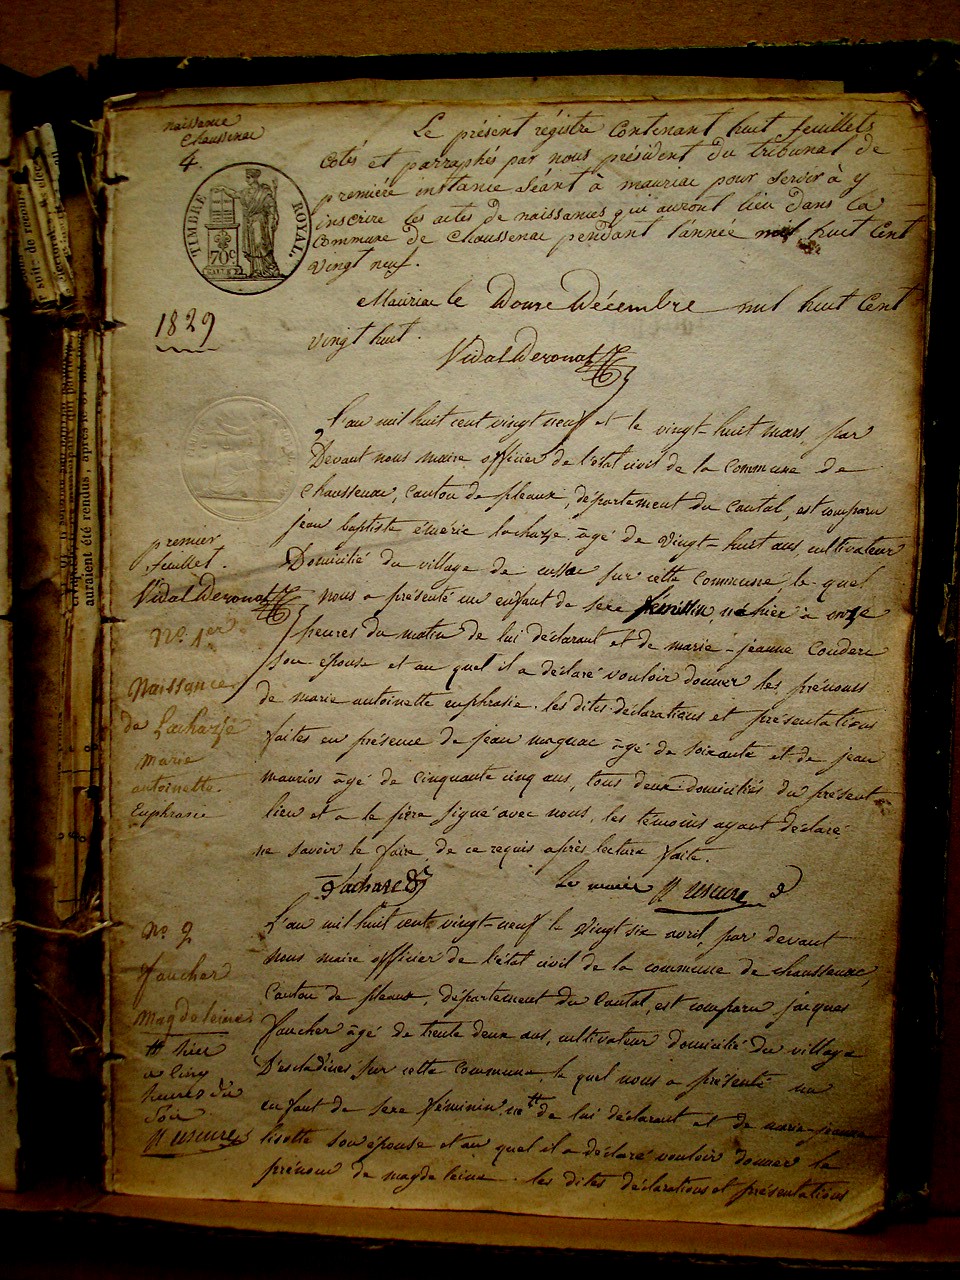 naissance
Chaussenac
4.
TIMBRE ROYAL
70c
1829
Le présent régistre Contenant huit feuillets
cotés et parraphés par nous président du tribunal de
première instance Séant à mauriac pour servir à y
inscrire les actes de naissances qui auront lieu dans la
Commune de Chaussenac pendant l'année mil huit Cent
vingt neuf.
Mauriac le Douze Décembre mil huit Cent
vingt huit.
Vidal Deronat
premier
feuillet.
Vidal Deronat
No. 1er
Naissance
de Lacharze
marie
antoinette
Euphrasie
L'an mil huit cent vingt neuf et le vingt-huit mars, par
Devant nous maire officier de l'état civil de la commune de
Chaussenac, Canton de pleaux, département du cantal, est comparu
jean baptiste éméric lacharze âgé de vingt-huit ans cultivateur
Domicilié du village de sur cette commune le quel
nous a présenté un enfant de sexe féminin, né hier à onze
heures du matin de lui déclarant et de marie-jeanne Couderc
son épouse et au quel il a déclaré vouloir donner les prénoms
de marie antoinette euphrasie. les dites déclarations et présentations
faites en présence de jean magnac âgé de soixante et de jean
maurios âgé de cinquante cinq ans, tous deux domiciliés du présent
lieu et a le père signé avec nous, les témoins ayant déclaré
ne savoir le faire, de ce requis après lecture faite.
Lacharze
Le maire
No. 2
faucher
Magdeleine
née hier
a cinq
heures du
soir
L'an mil huit cent vingt-neuf le vingt six avril, par devant
nous maire officier de l'état civil de la commune de chaussenac,
Canton de pleaux, département du Cantal, est comparu jacques
faucher âgé de trente deux ans, cultivateur domicilié du village
D'escladines sur cette commune, le quel nous a présenté un
enfant de sexe féminin né de lui déclarant et de marie-jeanne
lisette son épouse et au quel il a déclaré vouloir donner le
prénom de magdeleine. les dites déclarations et présentations